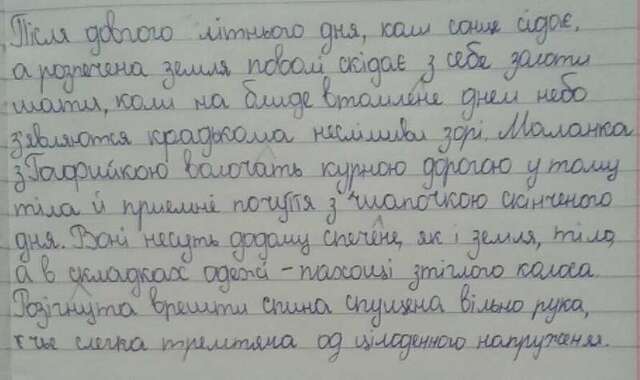 Після довгого літнього дня, коли сонце сідає,
а розпечена земля поволі скідає з себе золоті
шати, коли на бліде втомлене днем небо
з'являются крадькома несмілиьи зорі. Маланка
з Гафрийкою волочать курною дорогою утому
тіла й приємне почуття з шапочкою скінченого
дня. Воні несуть додому спечене, як і земля, тіло,
а в складках одежі - пахощі зтіглого колоса
Розігнута врешти спина спущена вільно рука,
чє слегка тремтяча од цілоденного напруження.